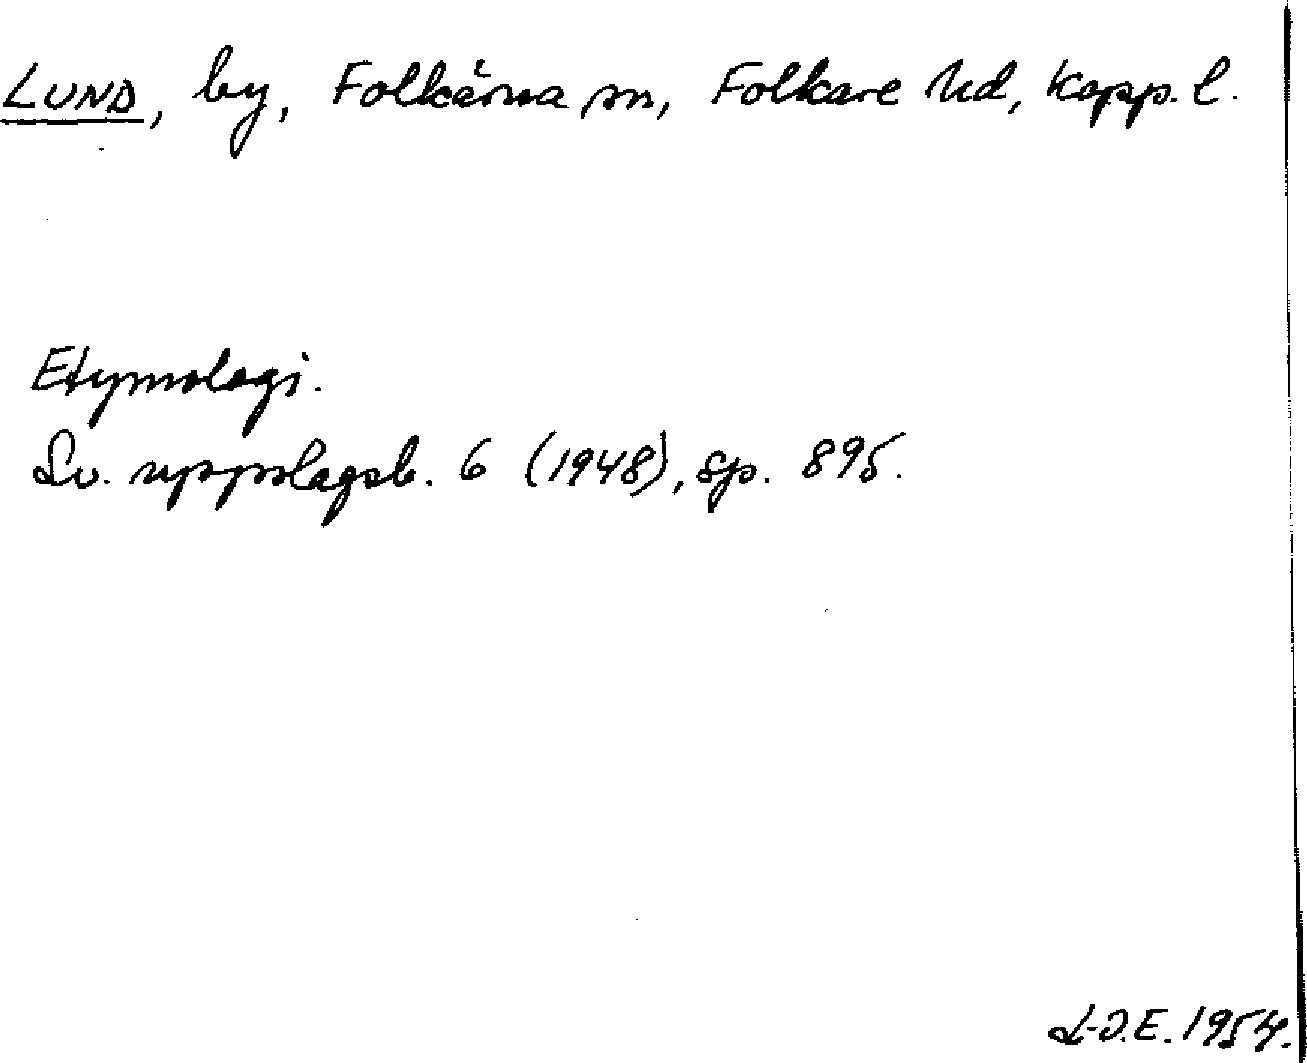 LUND, by, Folkärna sn, Folkare hd, Kopp. l.
Etymologi.
Sv. uppslagsb. 6 (1948), sp. 895.
L-O.E. 1954.